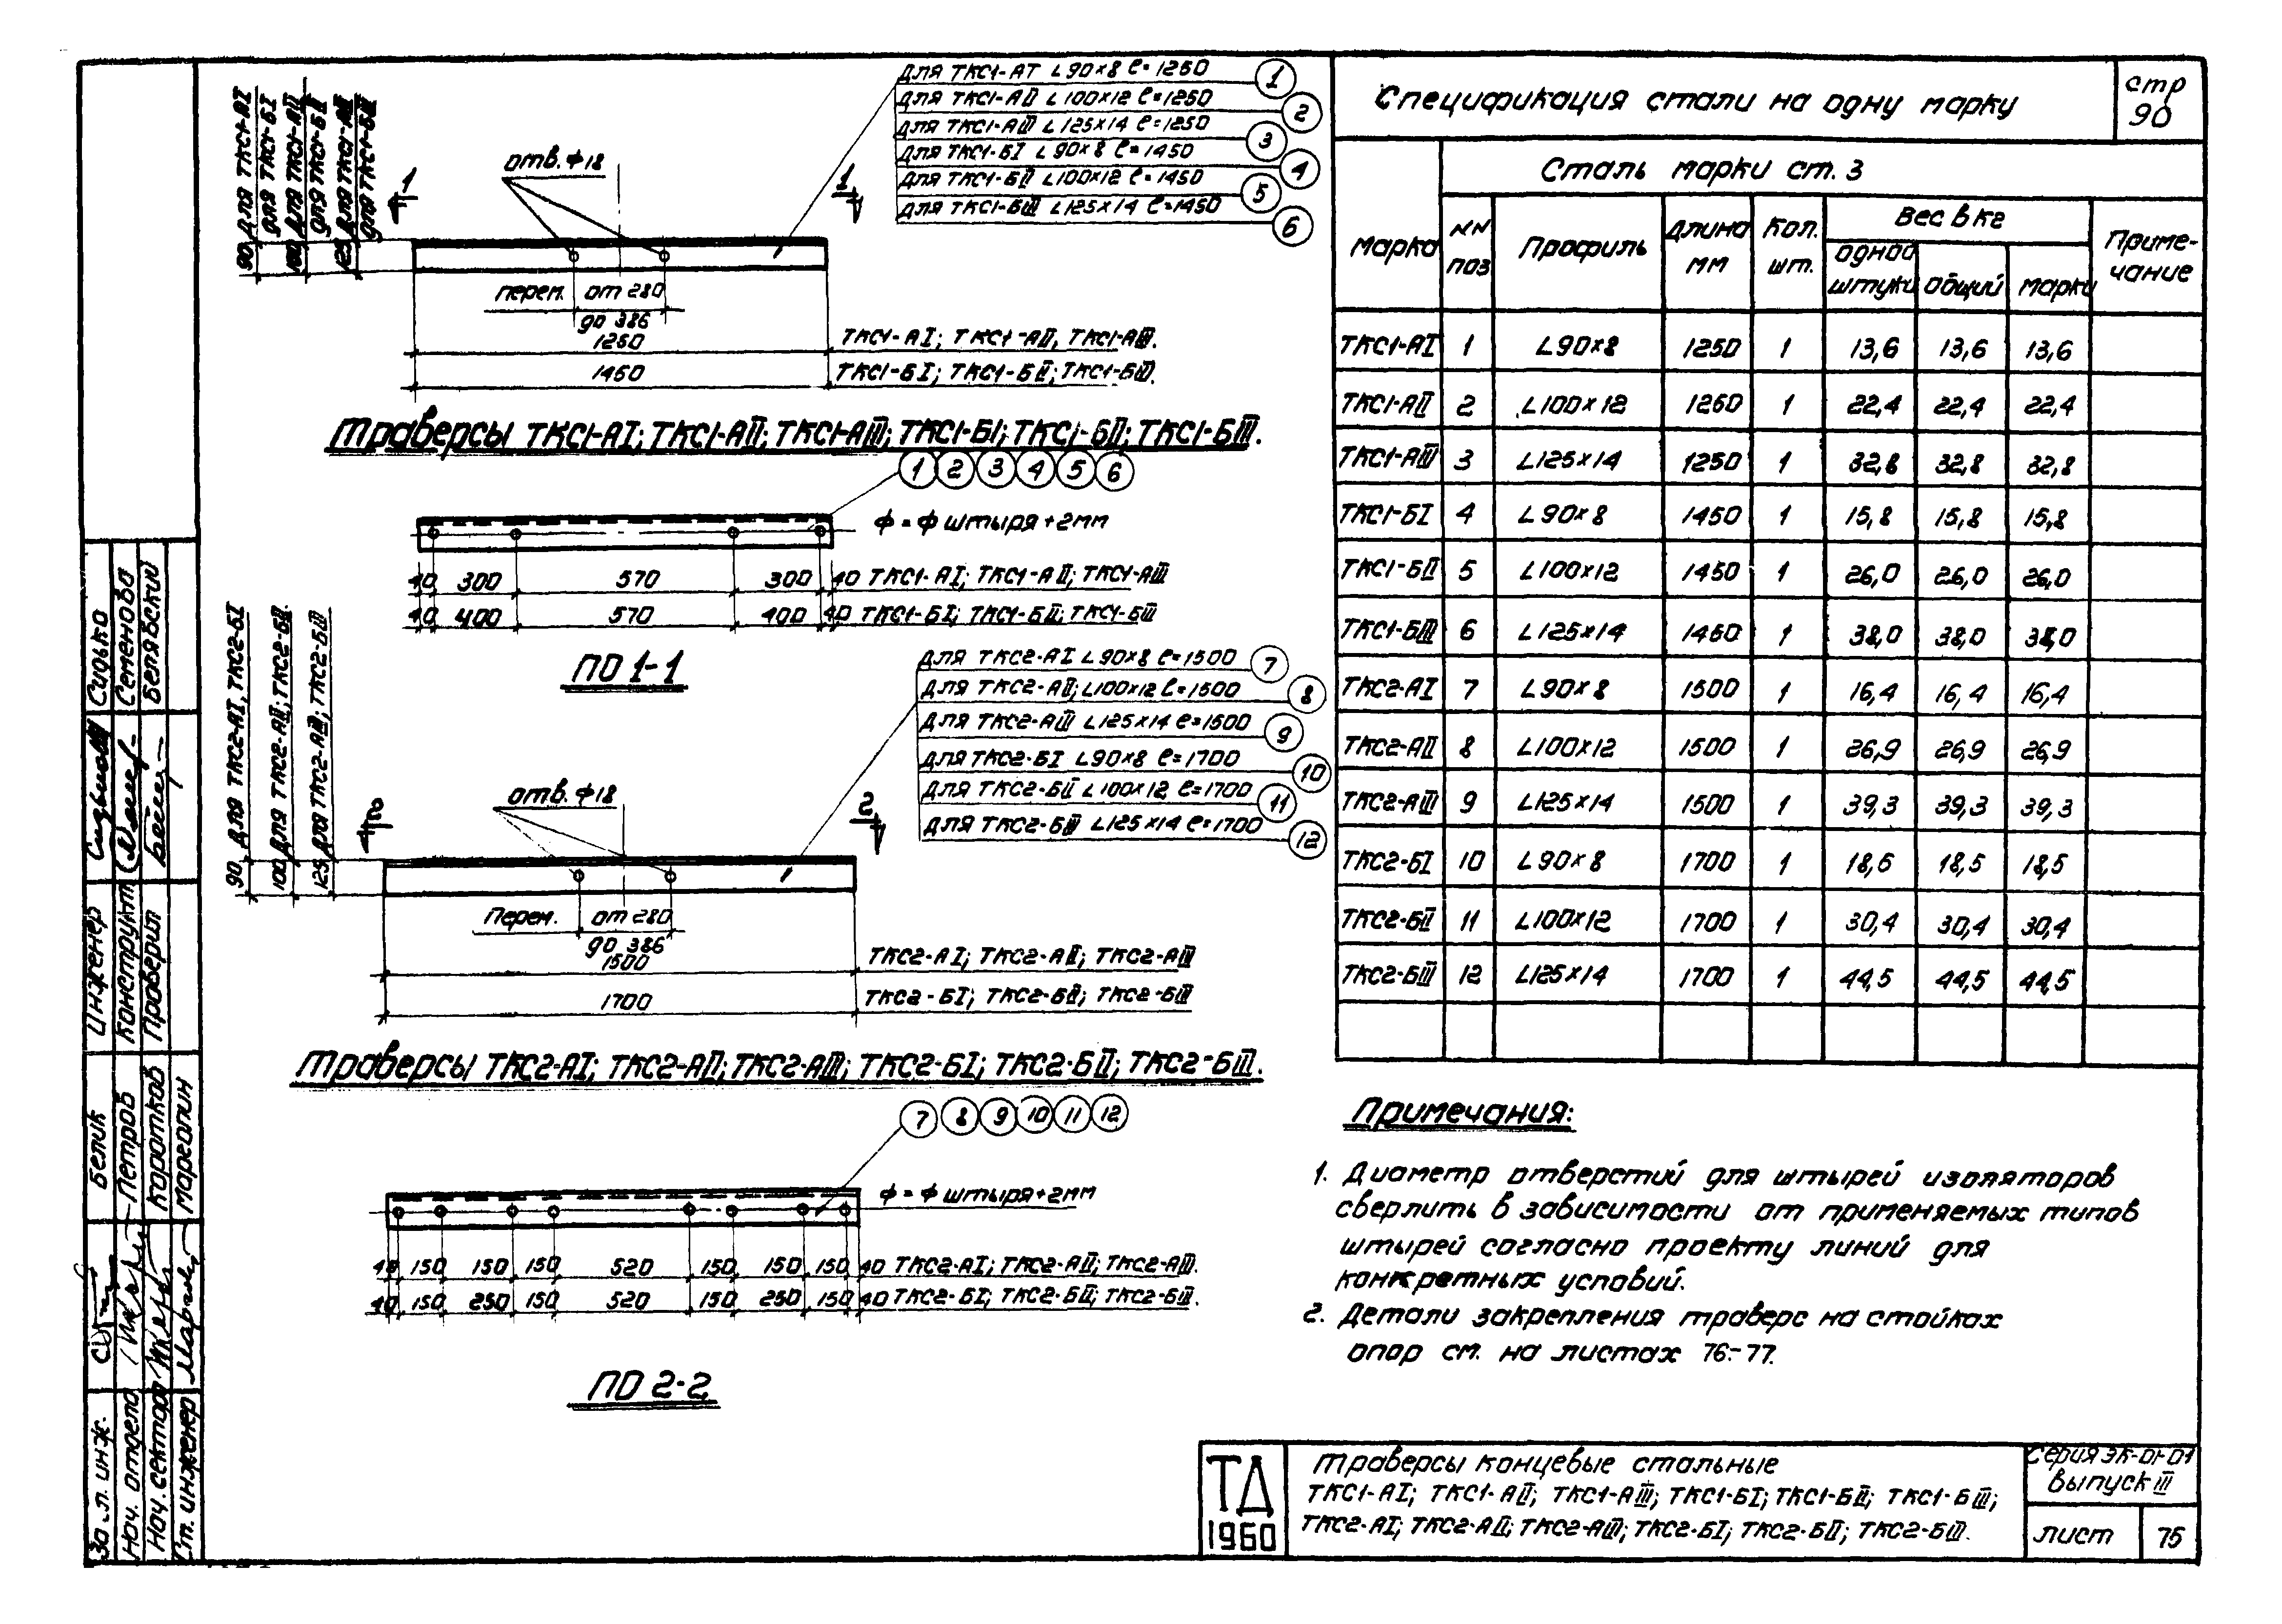 для ТКС1-АI L90×8 ℓ=1250 1
для ТКС1-АII L100×12 ℓ=1250 2
для ТКС1-АIII L125×14 ℓ=1250 3
для ТКС1-БI L90×8 ℓ=1450 4
для ТКС1-БII L100×12 ℓ=1450 5
для ТКС1-БIII L125×14 ℓ=1450 6
90 для ТКС1-АI
для ТКС1-БI
100 для ТКС1-АII
для ТКС1-БII
125 для ТКС1-АIII
для ТКС1-БIII
1 1
отв. ф18
перем. от 280
до 386
1250 ТКС1-АI; ТКС1-АII, ТКС1-АIII.
1450 ТКС1-БI; ТКС1-БII; ТКС1-БIII.
Траверсы ТКС1-АI; ТКС1-АII; ТКС1-АIII; ТКС1-БI; ТКС1-БII; ТКС1-БIII.
1 2 3 4 5 6
ф = ф штыря + 2мм
40 300 570 300 40 ТКС1-АI; ТКС1-АII; ТКС1-АIII
40 400 570 400 40 ТКС1-БI; ТКС1-БII; ТКС1-БIII
ПО 1-1
для ТКС2-АI L90×8 ℓ=1500 7
для ТКС2-АII; L100×12 ℓ=1500 8
для ТКС2-АIII L125×14 ℓ=1500 9
для ТКС2-БI L90×8 ℓ=1700 10
для ТКС2-БII L100×12 ℓ=1700 11
для ТКС2-БIII L125×14 ℓ=1700 12
90 для ТКС2-АI, ТКС2-БI
100 для ТКС2-АII; ТКС2-БII.
125 для ТКС2-АIII; ТКС2-БIII
2 2
отв. ф18
Перем. от 280
до 386
1500 ТКС2-АI; ТКС2-АII; ТКС2-АIII
1700 ТКС2-БI; ТКС2-БII; ТКС2-БIII
Траверсы ТКС2-АI; ТКС2-АII; ТКС2-АIII; ТКС2-БI; ТКС2-БII; ТКС2-БIII.
7 8 9 10 11 12
ф = ф штыря + 2мм
40 150 150 150 520 150 150 150 40 ТКС2-АI; ТКС2-АII; ТКС2-АIII.
40 150 250 150 520 150 250 150 40 ТКС2-БI; ТКС2-БII; ТКС2-БIII.
ПО 2-2
Спецификация стали на одну марку
стр
90
Сталь марки ст. 3
Марка NN поз Профиль Длина мм Кол. шт. Вес в кг Примечание
одной штуки общий марки
ТКС1-АI 1 L90×8 1250 1 13,6 13,6 13,6
ТКС1-АII 2 L100×12 1250 1 22,4 22,4 22,4
ТКС1-АIII 3 L125×14 1250 1 32,8 32,8 32,8
ТКС1-БI 4 L90×8 1450 1 15,8 15,8 15,8
ТКС1-БII 5 L100×12 1450 1 26,0 26,0 26,0
ТКС1-БIII 6 L125×14 1450 1 38,0 38,0 38,0
ТКС2-АI 7 L90×8 1500 1 16,4 16,4 16,4
ТКС2-АII 8 L100×12 1500 1 26,9 26,9 26,9
ТКС2-АIII 9 L125×14 1500 1 39,3 39,3 39,3
ТКС2-БI 10 L90×8 1700 1 18,5 18,5 18,5
ТКС2-БII 11 L100×12 1700 1 30,4 30,4 30,4
ТКС2-БIII 12 L125×14 1700 1 44,5 44,5 44,5
Примечания:
1. Диаметр отверстий для штырей изоляторов
сверлить в зависимости от применяемых типов
штырей согласно проекту линий для
конкретных условий.
2. Детали закрепления траверс на стойках
опор см. на листах 76-77.
ТД
1960
Траверсы концевые стальные
ТКС1-АI; ТКС1-АII; ТКС1-АIII; ТКС1-БI; ТКС1-БII; ТКС1-БIII;
ТКС2-АI; ТКС2-АII; ТКС2-АIII; ТКС2-БI; ТКС2-БII; ТКС2-БIII.
Серия ЭК-01-01
Выпуск III
лист 75
Инженер Сидько
Конструкт Семенова
Проверил Белявский
инж. Белик
Нач. отдела Петров
Нач. сектора Коротков
Ст. инженер Марголин